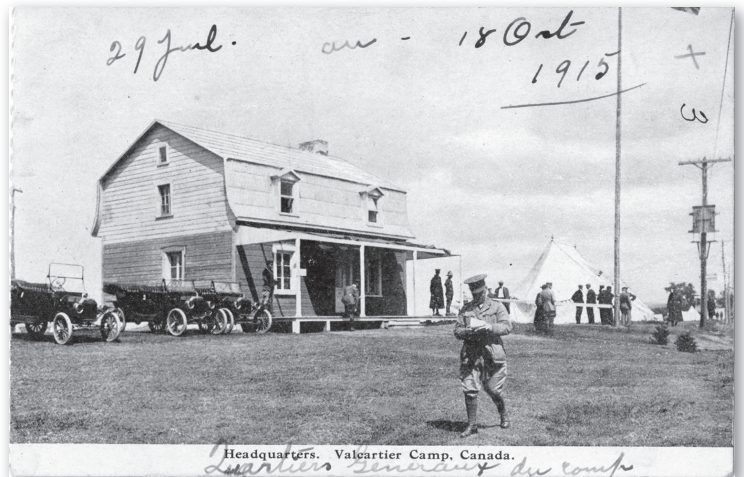 29 Juil. au - 18 Oct
1915
+
3
Headquarters. Valcartier Camp, Canada.
Quartiers Generaux du camp